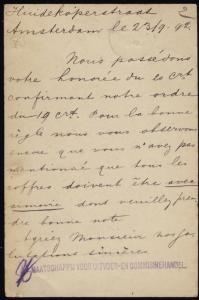 Huideköperstraat 2
Amsterdam le 23/9. 92
Nous possédons
votre honorée du 20 crt
confirmant notre ordre
du 19 crt. Pour la bonne
règle nous vous observons
encore que vous n'avez pas
mentionné que tous les
coffres doivent être avec
armoire dont veuillez pren
dre bonne note
Agréez Monsieur nos sa
lutations sincères
MAATSCHAPPIJ VOOR UITVOER- EN COMMISSIEHANDEL